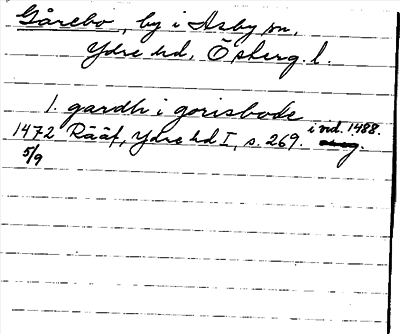 Gårebo, by i Asby sn,
Ydre hd, Österg. l.
1. gardh i gorisbode
1472 Rääf, Ydre hd I, s. 269. i vid. 1488.
5/9